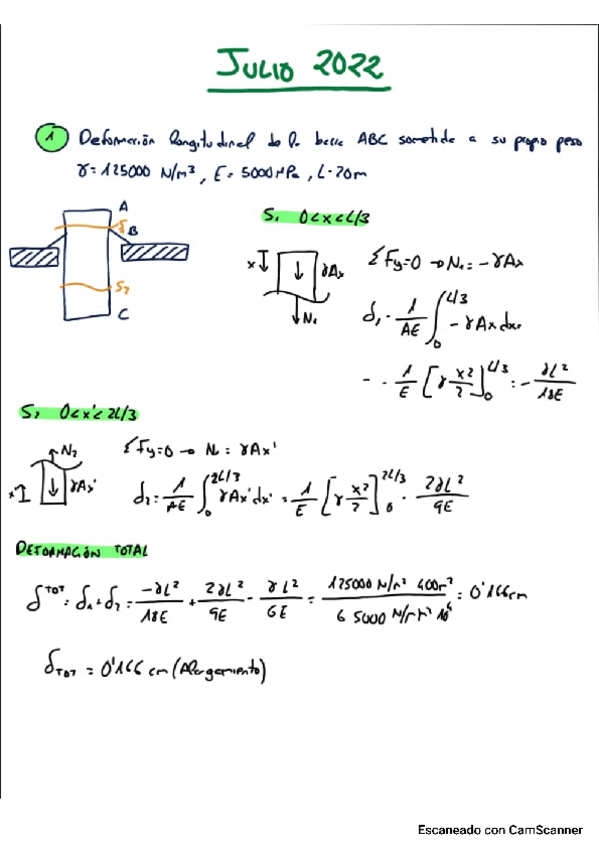 JULIO 2022
1 Deformación longitudinal de la barra ABC sometida a su propio peso
γ = 125000 N/m³, E = 5000 MPa, L = 20m
A
S1
B
S2
C
S1 0<x<L/3
x γAx N1
ΣFy=0 → N1 = -γAx
δ1 = 1/AE ∫₀^(L/3) -γAx dx
= 1/E [γ x²/2]₀^(L/3) = -γL²/18E
S2 0<x'<2L/3
N2 x' γAx'
ΣFy=0 → N2 = γAx'
δ2 = 1/AE ∫₀^(2L/3) γAx' dx' = 1/E [γ x²/2]₀^(2L/3) = 2γL²/9E
DEFORMACIÓN TOTAL
δ^TOT = δ1 + δ2 = -γL²/18E + 2γL²/9E = γL²/6E = 125000 N/m³ 400m²/6 5000 N/m² 10⁶ = 0'166cm
δTOT = 0'166 cm (Alargamiento)
Escaneado con CamScanner